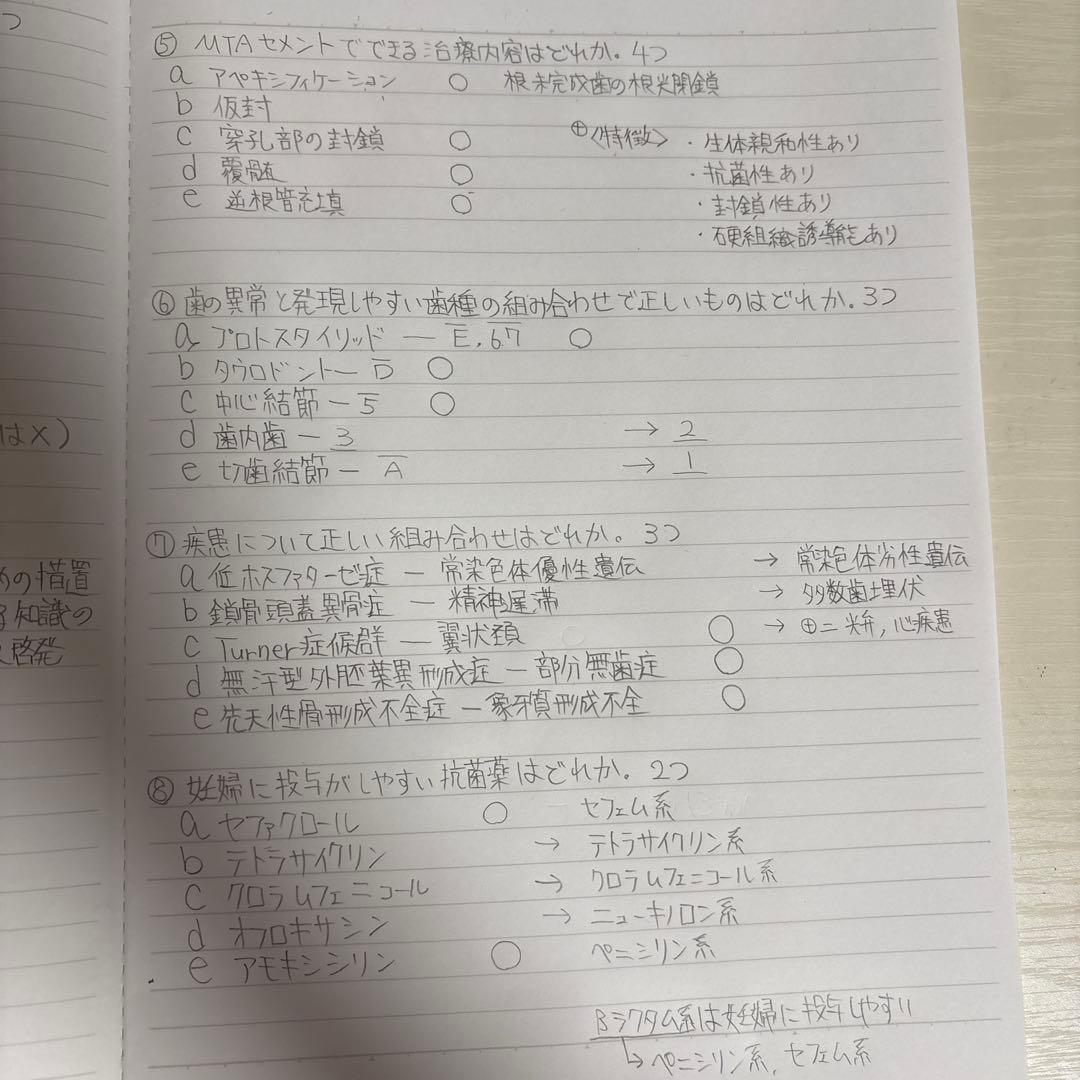 つ
はX)
めの措置
る知識の
啓発
⑤ MTAセメントでできる治療内容はどれか。4つ
a アペキシフィケーション ○ 根未完成歯の根尖閉鎖
b 仮封
c 穿孔部の封鎖 ○ ⊕〈特徴〉・生体親和性あり
d 覆髄 ○ ・抗菌性あり
e 逆根管充填 ○ ・封鎖性あり
・硬組織誘導能あり
⑥ 歯の異常と発現しやすい歯種の組み合わせで正しいものはどれか。3つ
a プロトスタイリッド ― E, 6.7 ○
b タウロドント ― D ○
c 中心結節 ― 5 ○
d 歯内歯 ― 3 → 2
e 切歯結節 ― A → 1
⑦ 疾患について正しい組み合わせはどれか。3つ
a 低ホスファターゼ症 ― 常染色体優性遺伝 → 常染色体劣性遺伝
b 鎖骨頭蓋異骨症 ― 精神遅滞 → 多数歯埋伏
c Turner症候群 ― 翼状頚 ○ → ⊕二尖弁, 心疾患
d 無汗型外胚葉異形成症 ― 部分無歯症 ○
e 先天性骨形成不全症 ― 象牙質形成不全 ○
⑧ 妊婦に投与がしやすい抗菌薬はどれか。2つ
a セファクロール ○ セフェム系
b テトラサイクリン → テトラサイクリン系
c クロラムフェニコール → クロラムフェニコール系
d オフロキサシン → ニューキノロン系
e アモキシシリン ○ ペニシリン系
βラクタム系は妊婦に投与しやすい
↳ペニシリン系, セフェム系